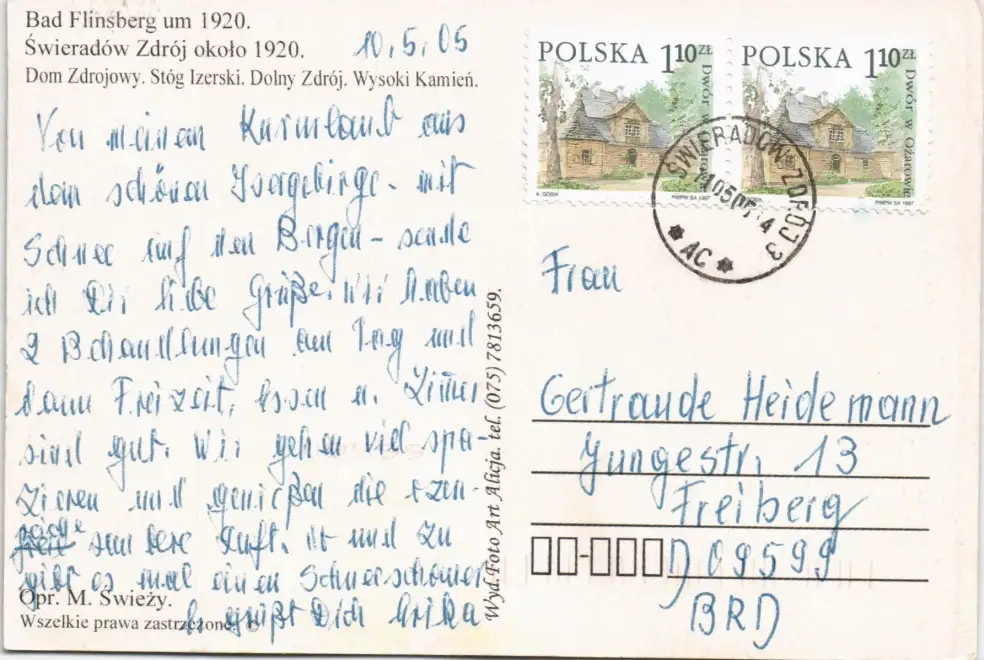 Bad Flinsberg um 1920.
Świeradów Zdrój około 1920.
10.5.05
Dom Zdrojowy. Stóg Izerski. Dolny Zdrój. Wysoki Kamień.
Von meinem Kururlaub aus
dem schönen Isergebirge - mit
Schnee auf den Bergen - sende
ich Dir liebe Grüße. Wir haben
2 Behandlungen am Tag und
dann Freizeit, Essen u. Zimmer
sind gut. Wir gehen viel spa-
zieren und genießen die ozon-
saubere Luft. Ab und zu
gibt es mal einen Schneeschauer
Es grüßt Dich Erika
Opr. M. Świeży.
Wszelkie prawa zastrzeżone. ©
Wyd. Foto Art Alicja. tel. (075) 7813659.
POLSKA 110 ZŁ
Dwór w
A. GOSIK
PWPW SA 1997
POLSKA 110 ZŁ
Dwór w Ożarowie
PWPW SA 1997
ŚWIERADÓW-ZDRÓJ 3
AC
Frau
Gertraude Heidemann
Jungestr. 13
Freiberg
D 09599
BRD